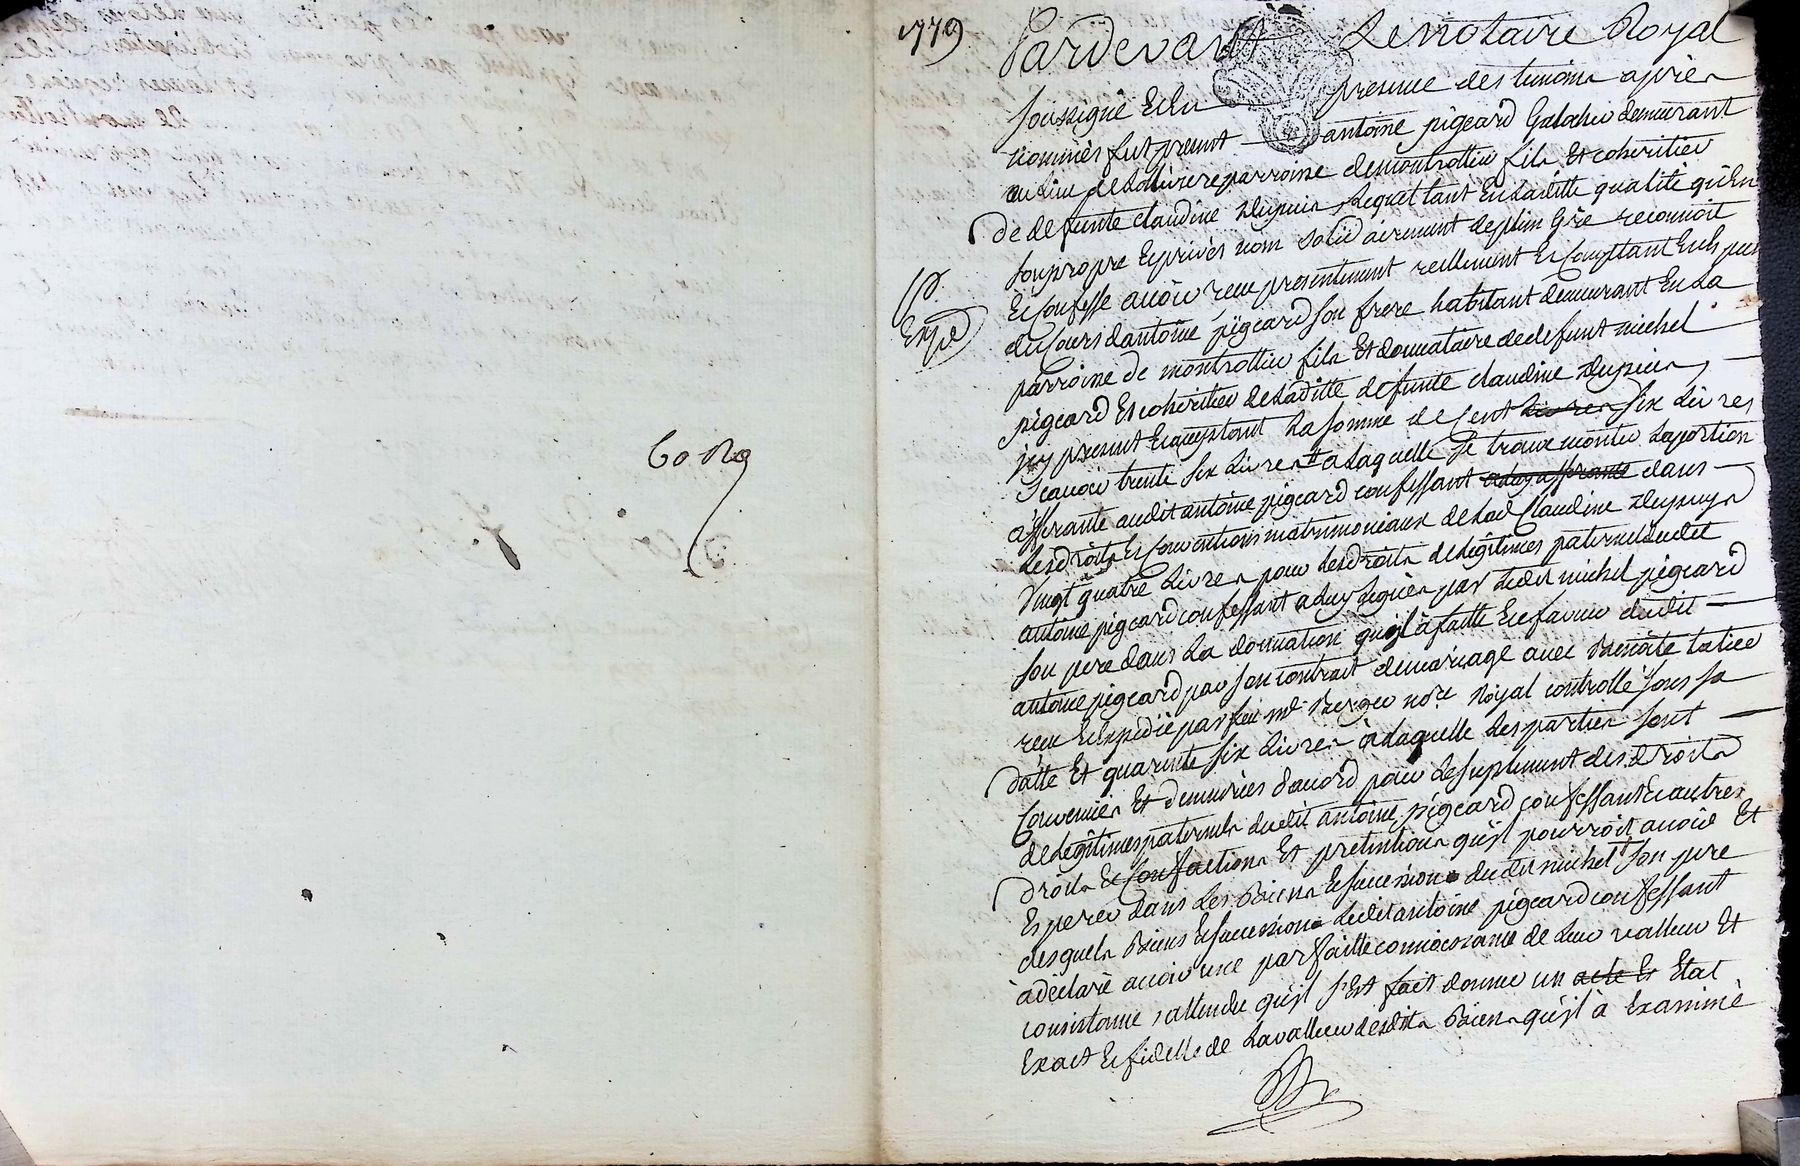 1779
Pardevant Le notaire Royal
soussigné Et En presence des temoins aprés
nommés fut present antoine pigeard Galochier demeurant
au Lieu de parroisse demontrottier fils Et coheritier
de defunte claudine Dupuis, Lequel tant En Laditte qualité qu'En
son propre Et privés nom solidairement deplein Gré reconnoit
Et confesse avoir receu presentement reellement Et Comptant En Especes
du Cours d'antoine pigeard son frere habitant demeurant En La
parroisse de montrottier fils Et donnataire dedefunt michel
pigeard Et coheritier de Laditte defunte claudine Dupuis,
icy present Et acceptant La somme de Cent Livres six Livres
Exped
scavoir trente six Livres a Laquelle se trouve monter Laportion
afferante audit antoine pigeard confessant dans
Lesdroits Et Conventions matrimoniaux de Lad Claudine Dupuys
Vingt quatre Livres pour Lesdroits de Legitimes paternels dudit
antoine pigeard confessant a Luy Legués par Ledit michel pigeard
son pere dans La donnation qu'il à faitte En faveur dudit
antoine pigeard par son contrait demariage avec Benoite
receu Et Expedié par feu me Berger nore Royal controllé sous sa
datte Et quarente six Livres à Laquelle Les parties sont
Convenues Et demeurées d'acord pour Lesuplement des Droits
de Legitimes paternels dudit antoine pigeard confessant Et autres
Droits Et actions Et pretentions qu'il pourroit avoir Et
Esperer dans Les Biens Et succession dudit michel son pere
desquels Biens Et succession Ledit antoine pigeard confessant
à déclaré avoir une parfaitte connoissance de Leur valleur Et
consistance, attendu qu'il s'Est fait donner un acte Et Etat
Exact Et fidelle de La valleur desdits Biens qu'il à Examiné